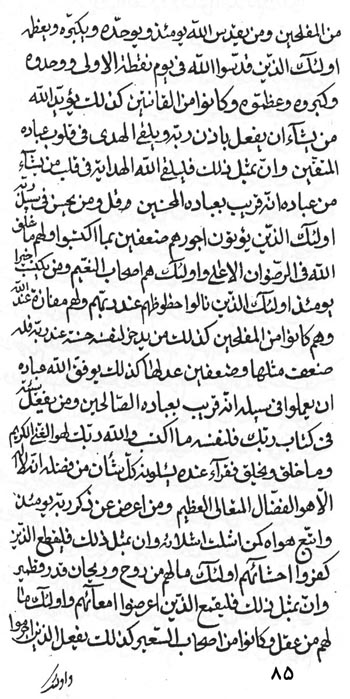 من المفلحين ومن يقدس الله يومئذ ويوحده ويكبره ويعظمه
اولئك الذين قدسوا الله في يوم نقطة الاولى ووحدوه
وكبروه وعظموه وكانوا من القانتين كذلك يؤيد الله
من يشآء ان يفعل باذن ربه ويلقي الهدى في قلوب عباده
المتقين وان بمثل ذلك فليلقي الله الهداية في قلب من يشآء
من عباده انه قريب بعباده المحسنين وقل ومن يحسن في سبيل ربه
اولئك الذين يؤتون اجورهم ضعفين بما اكتسبوا ولهم ما خلق
الله في الرضوان الاعلى واولئك هم اصحاب النعيم ومن يكسب خيرا
يومئذ اولئك الذين نالوا حظوظهم عند ربهم ولهم مفازة عند الله
وهم كانوا من المفلحين كذلك من يدخر لنفسه حسنة عند ربه فله
ضعف مثلها وضعفين عدلها كذلك يوفق الله عباده
ان يعملوا في سبيله انه قريب بعباده الصالحين ومن يفعل
في كتاب ربك فلنفسه ما اكتسب والله ربك لهو الغني الكريم
وما خلق ويخلق فقرآء عنده يسئلونه كل شأن من فضله انه لا اله
الا هو الفضال المتعالي العظيم ومن اعرض عن ذكر ربه يومئذ
واتبع هواه كمن وان بمثل ذلك فليقطع الذين
كفروا احشائهم اولئك ما لهم من روح وريحان قدر قطمير
وان بمثل ذلك فليقطع الذين اعرضوا امعآئهم واولئك ما
لهم من عقل وكانوا من اصحاب السعير كذلك يفعل الذين
واولئك
٨٥